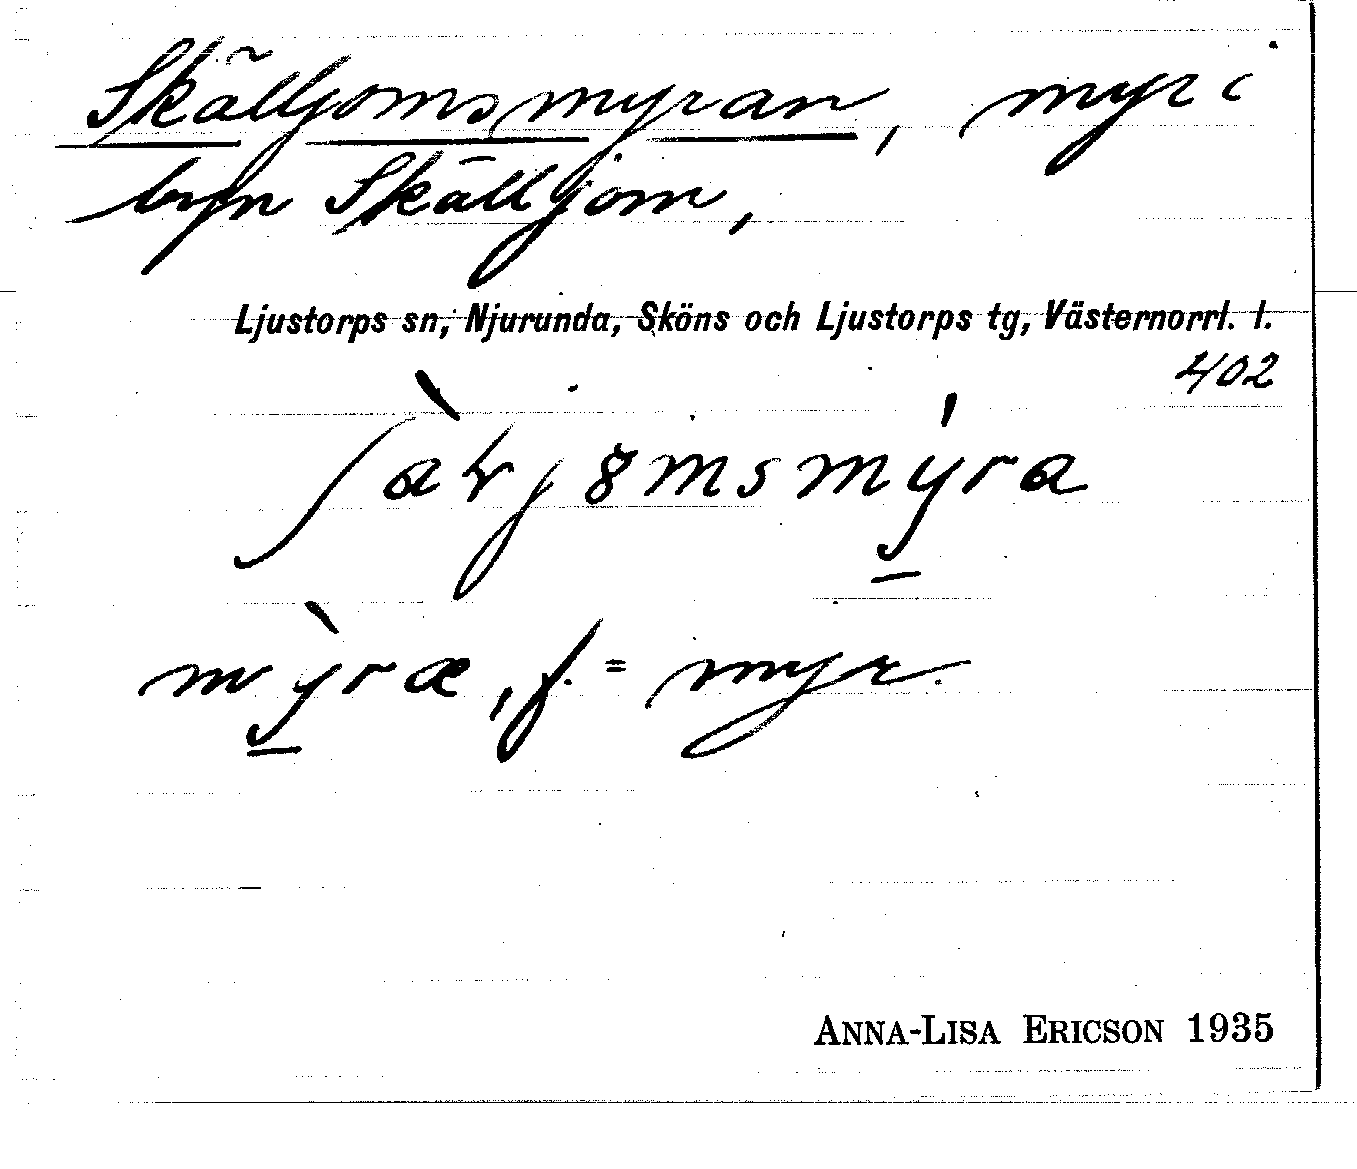 Skälljomsmyran, myr i
byn Skälljom,
Ljustorps sn, Njurunda, Sköns och Ljustorps tg, Västernorrl. l.
402
mỳræ, f. = myr.
ANNA-LISA ERICSON 1935